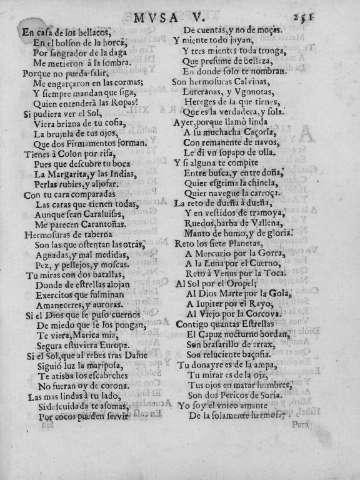 MVSA V.
251
En casa de los bellacos,
En el bolson de la horca,
Por sangrador de la daga
Me metieron à la sombra.
Porque no pueda salir,
Me engarçaron en las cormas;
Y siempre mandan que siga,
Quien entenderà las Ropas!
Si pudiera ver el Sol,
Viera briznа de tu cofia,
La brujula de tus ojos,
Que dos Firmamentos forman.
Tienes à Colon por risa,
Pues que descubre tu boca
La Margarita, y las Indias,
Perlas rubies, y aljofar.
Con tu cara comparadas
Las caras que tienen todas,
Aunque sean Caraluisas,
Me parecen Carantoñas.
Hermosuras de taberna
Son las que ostentan las otras,
Aguadas, y mal medidas,
Pez, y pellejos, y moscas.
Tu miras con dos batallas,
Donde de estrellas alojan
Exercitos que fulminan
Amaneceres, y auroras.
Si el Dios que se puso cuernos
De miedo que se los pongan,
Te viera, Marica mia,
Segura estuviera Europa.
Si el Sol, que al rebes tras Dafne
Siguiò luz la mariposa,
Te atisba los escabeches
No fueran oy de corona.
Las mas lindas à tu lado,
Si descuidada te asomas,
Por cocos pueden servir
De cuentas, y no de moças.
Y miente todo jayan,
Y tres mientes toda tronga,
Que presume de belleza,
En donde solo te nombran.
Son hermosuras Calvinas,
Luteranas, y Vgonotas,
Hereges de la que tienes,
Que es la verdadera, y sola.
Ayer, porque llamò linda
A su muchacha Caçorla,
Con remanente de navos,
Le di vn sopapo de olla.
Y si alguna te compite
Entre busca, y entre doña,
Quier esgrima la chinela,
Quier navegue la carroça.
La reto de dueña à dueña,
Y en vestidos de tramoya,
Ruedos, barba de Vallena,
Manto de humo, y de gloria.
Reto los siete Planetas,
A Mercurio por la Gorra,
A la Luna por el Cuerno,
Reto à Venus por la Toca.
Al Sol por el Oropel;
Al Dios Marte por la Gola,
A Iupiter por el Rayo,
Al Viejo por la Corcova.
Contigo quantas Estrellas
El Capuz nocturno bordan,
Son brasarillo de arrax,
Son reluciente baçosia.
Tu donayre es de la ampa,
Tu mirar es de la oja,
Tus ojos en matar hombres,
Son dos Pericos de Soria.
Yo soy el vnico amante
De la solamente hermosa;
Pura